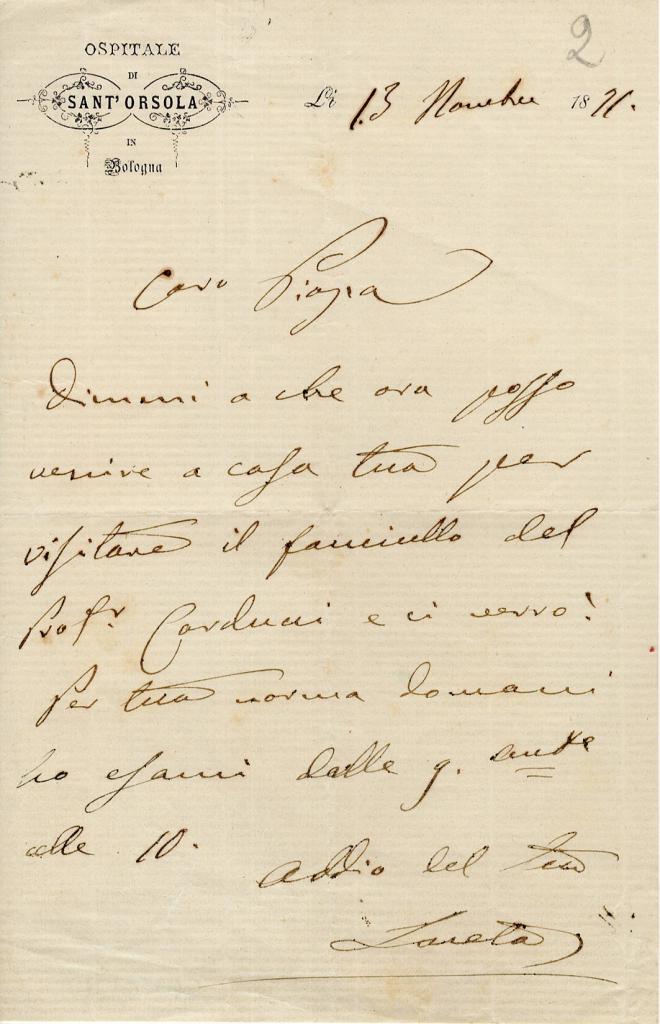 OSPITALE
DI
SANT'ORSOLA
IN
Bologna
2
Lì 13 Novembre 1871.
Caro Piazza
Dimmi a che ora posso
venire a casa tua per
visitare il fanciullo del
Prof.r Carducci e ci verrò!
Per tua norma domani
ho esami dalle 9. ant.e
alle 10.
Addio del tuo
Loreta